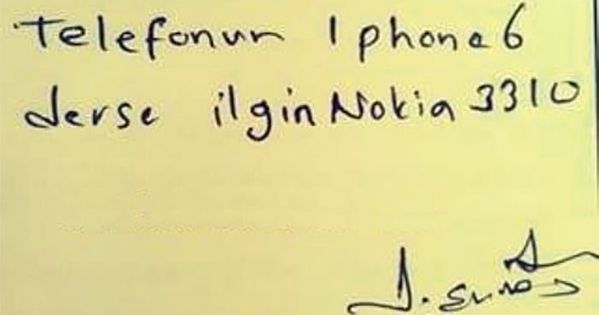 Telefonun Iphone 6
derse ilgin Nokia 3310